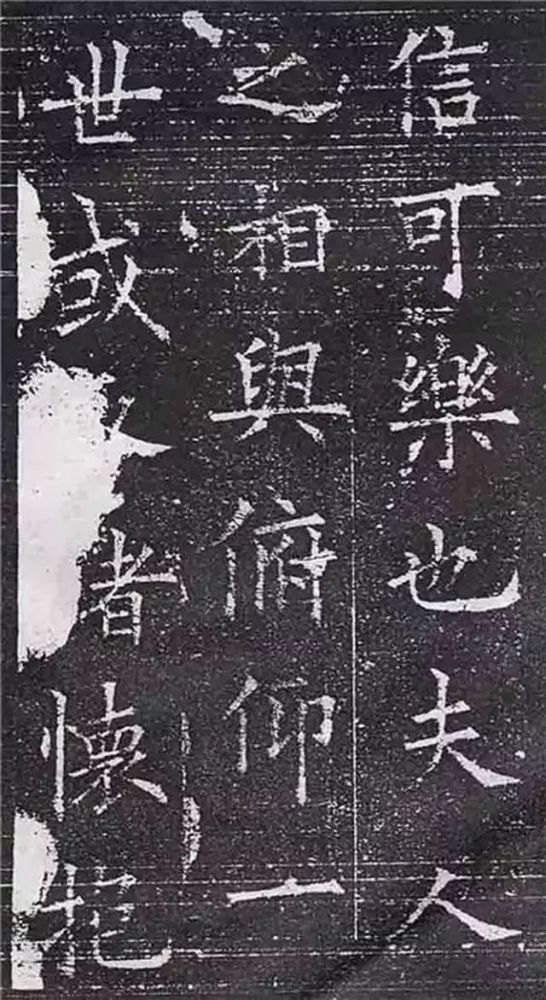 信可樂也夫人
之相與俯仰一
世或者懷抱